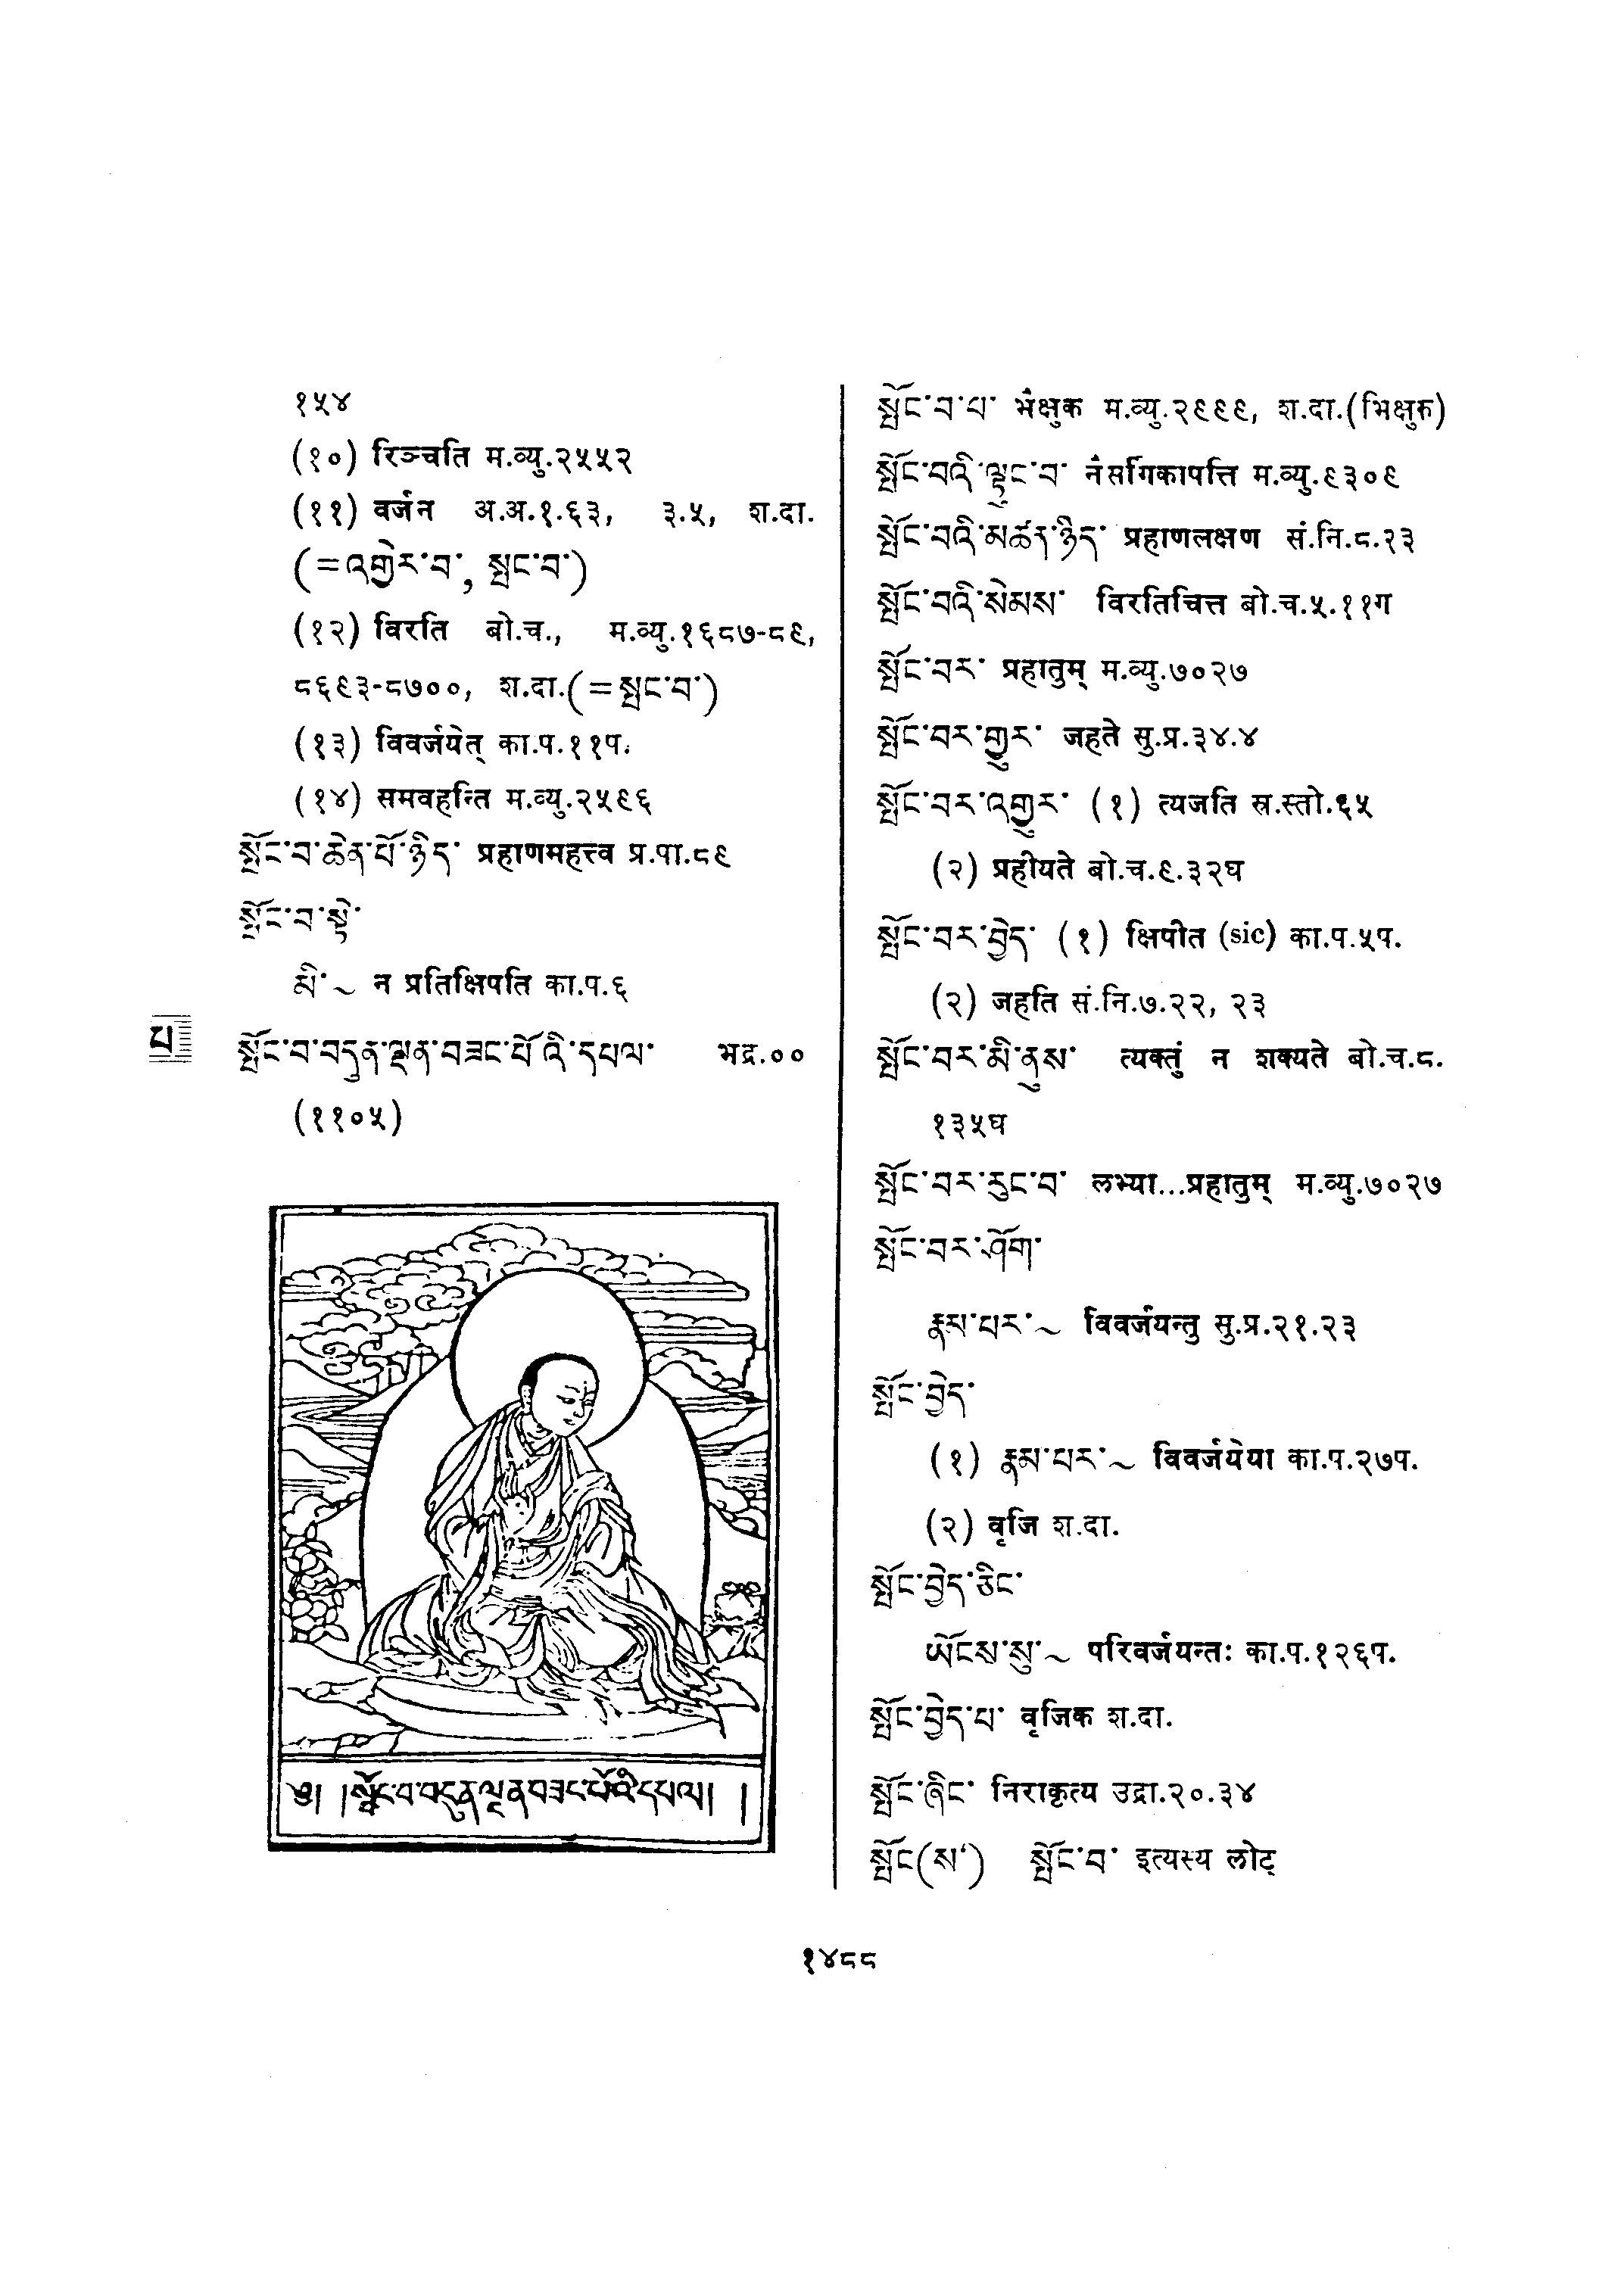 १५४
(१०) रिञ्चति म.व्यु.२५५२
(११) वर्जन अ.अ.१.६३, ३.५, श.दा.
(=འགྱེར་བ་, སྤང་བ་)
(१२) विरति बो.च., म.व्यु.१६८७-८९,
८६९३-८७००, श.दा.(=སྤང་བ་)
(१३) विवर्जयेत् का.प.११प.
(१४) समवहन्ति म.व्यु.२५९६
སྤོང་བ་ཆེན་པོ་ཉིད་ प्रहाणमहत्त्व प्र.पा.८९
སྤོང་བ་སྟེ་
མི་~ न प्रतिक्षिपति का.प.६
པ
སྤོང་བ་བདུན་ལྡན་བཟང་པོ་འི་དཔལ་ भद्र.००
(११०५)
༄། །སྤོང་བ་བདུན་ལྡན་བཟང་པོའི་དཔལ། །
སྤོང་བ་པ་ भैक्षुक म.व्यु.२९९९, श.दा.(भिक्षुक)
སྤོང་བའི་ལྟུང་བ་ नैसर्गिकापत्ति म.व्यु.९३०९
སྤོང་བའི་མཚན་ཉིད་ प्रहाणलक्षण सं.नि.८.२३
སྤོང་བའི་སེམས་ विरतिचित्त बो.च.५.११ग
སྤོང་བར་ प्रहातुम् म.व्यु.७०२७
སྤོང་བར་གྱུར་ जहते सु.प्र.३४.४
སྤོང་བར་འགྱུར་ (१) त्यजति स्र.स्तो.६५
(२) प्रहीयते बो.च.९.३२घ
སྤོང་བར་བྱེད་ (१) क्षिपीत (sic) का.प.५प.
(२) जहति सं.नि.७.२२, २३
སྤོང་བར་མི་ནུས་ त्यक्तुं न शक्यते बो.च.८.
१३५घ
སྤོང་བར་རུང་བ་ लभ्या...प्रहातुम् म.व्यु.७०२७
སྤོང་བར་ཤོག་
རྣམ་པར་~ विवर्जयन्तु सु.प्र.२१.२३
སྤོང་བྱེད་
(१) རྣམ་པར་~ विवर्जयेया का.प.२७प.
(२) वृजि श.दा.
སྤོང་བྱེད་ཅིང་
ཡོངས་སུ་~ परिवर्जयन्तः का.प.१२६प.
སྤོང་བྱེད་པ་ वृजिक श.दा.
སྤོང་ཞིང་ निराकृत्य उद्रा.२०.३४
སྤོང(ས་) སྤོང་བ་ इत्यस्य लोट्
१४८८